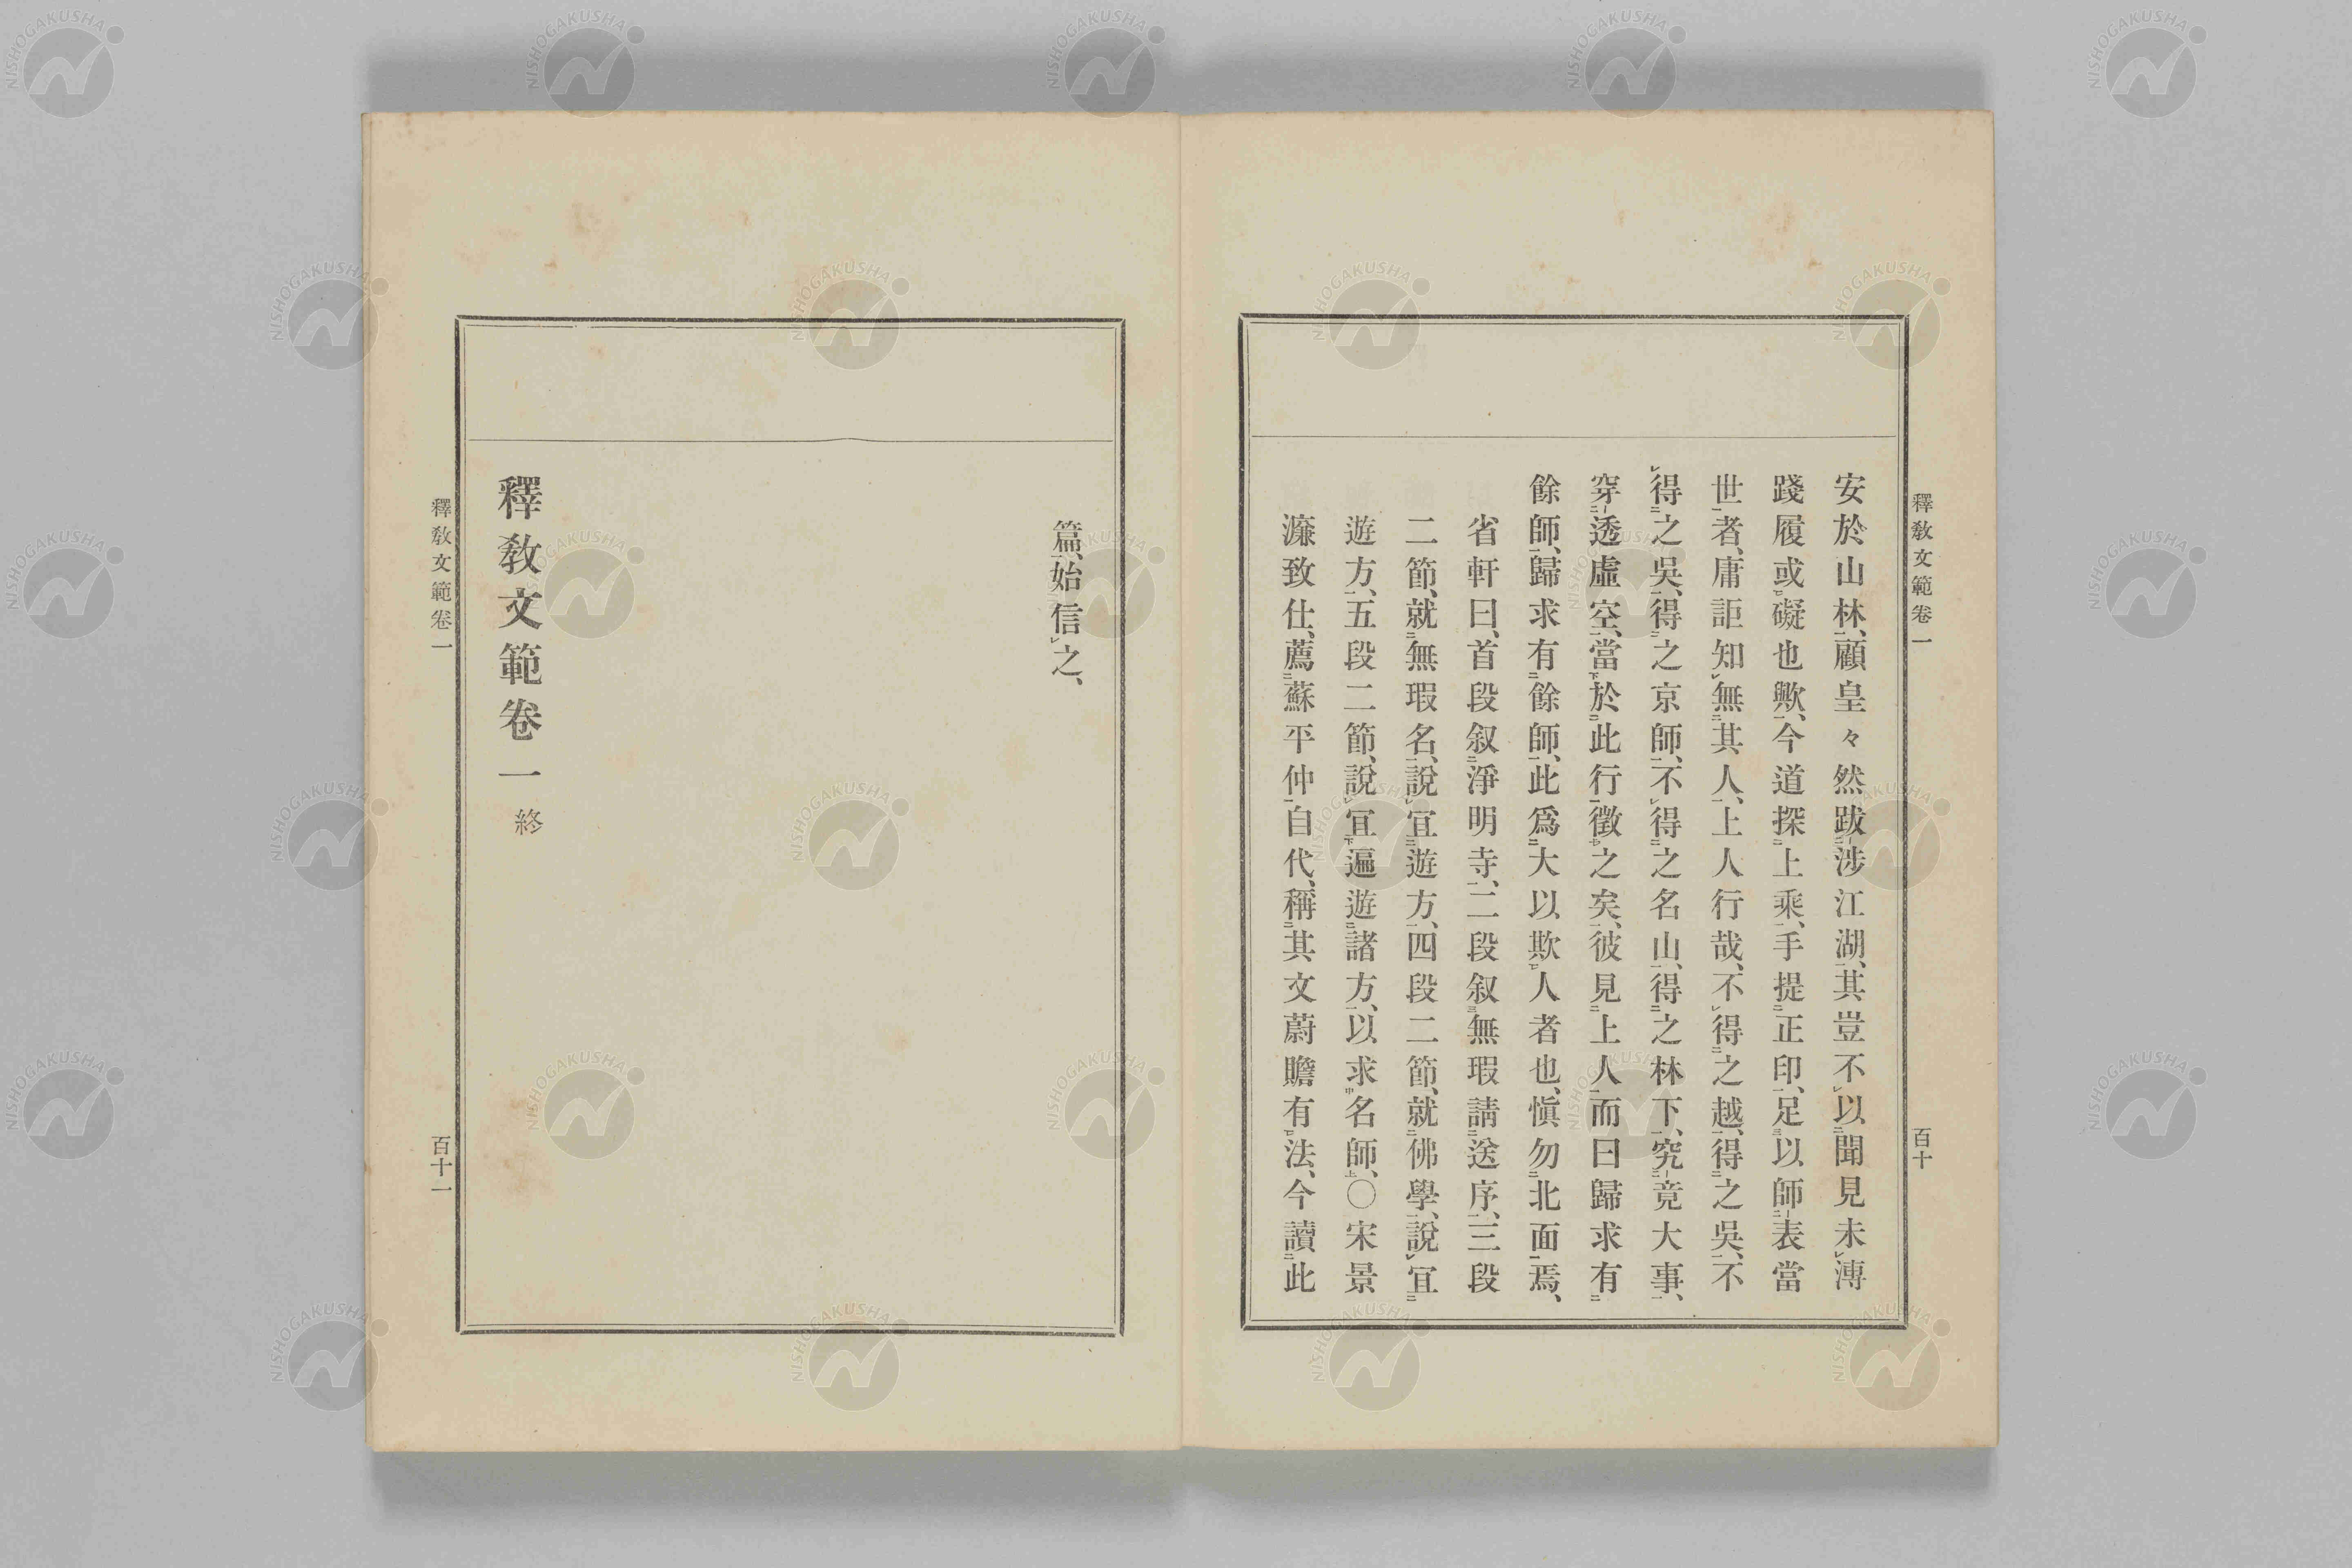 釋教文範卷一
百十
安於山林、顧皇々然跋涉江湖、其豈不以聞見未溥
踐履或礙也歟、今道探上乘、手提正印、足以師表當
世者、庸詎知無其人、上人行哉、不得之越、得之吳、不
得之吳、得之京師、不得之名山、得之林下、究竟大事、
穿透虛空、當於此行徵之矣、彼見上人而曰歸求有
餘師、歸求有餘師、此爲大以欺人者也、愼勿北面焉、
省軒曰、首段叙淨明寺、二段叙無瑕請送序、三段
二節、就無瑕名、說宜遊方、四段二節、就佛學、說宜
遊方、五段二節、說宜遍遊諸方、以求名師、〇宋景
濂致仕、薦蘇平仲自代、稱其文蔚贍有法、今讀此
篇、始信之、
釋教文範卷一 終
釋教文範卷一
百十一
NISHOGAKUSHA